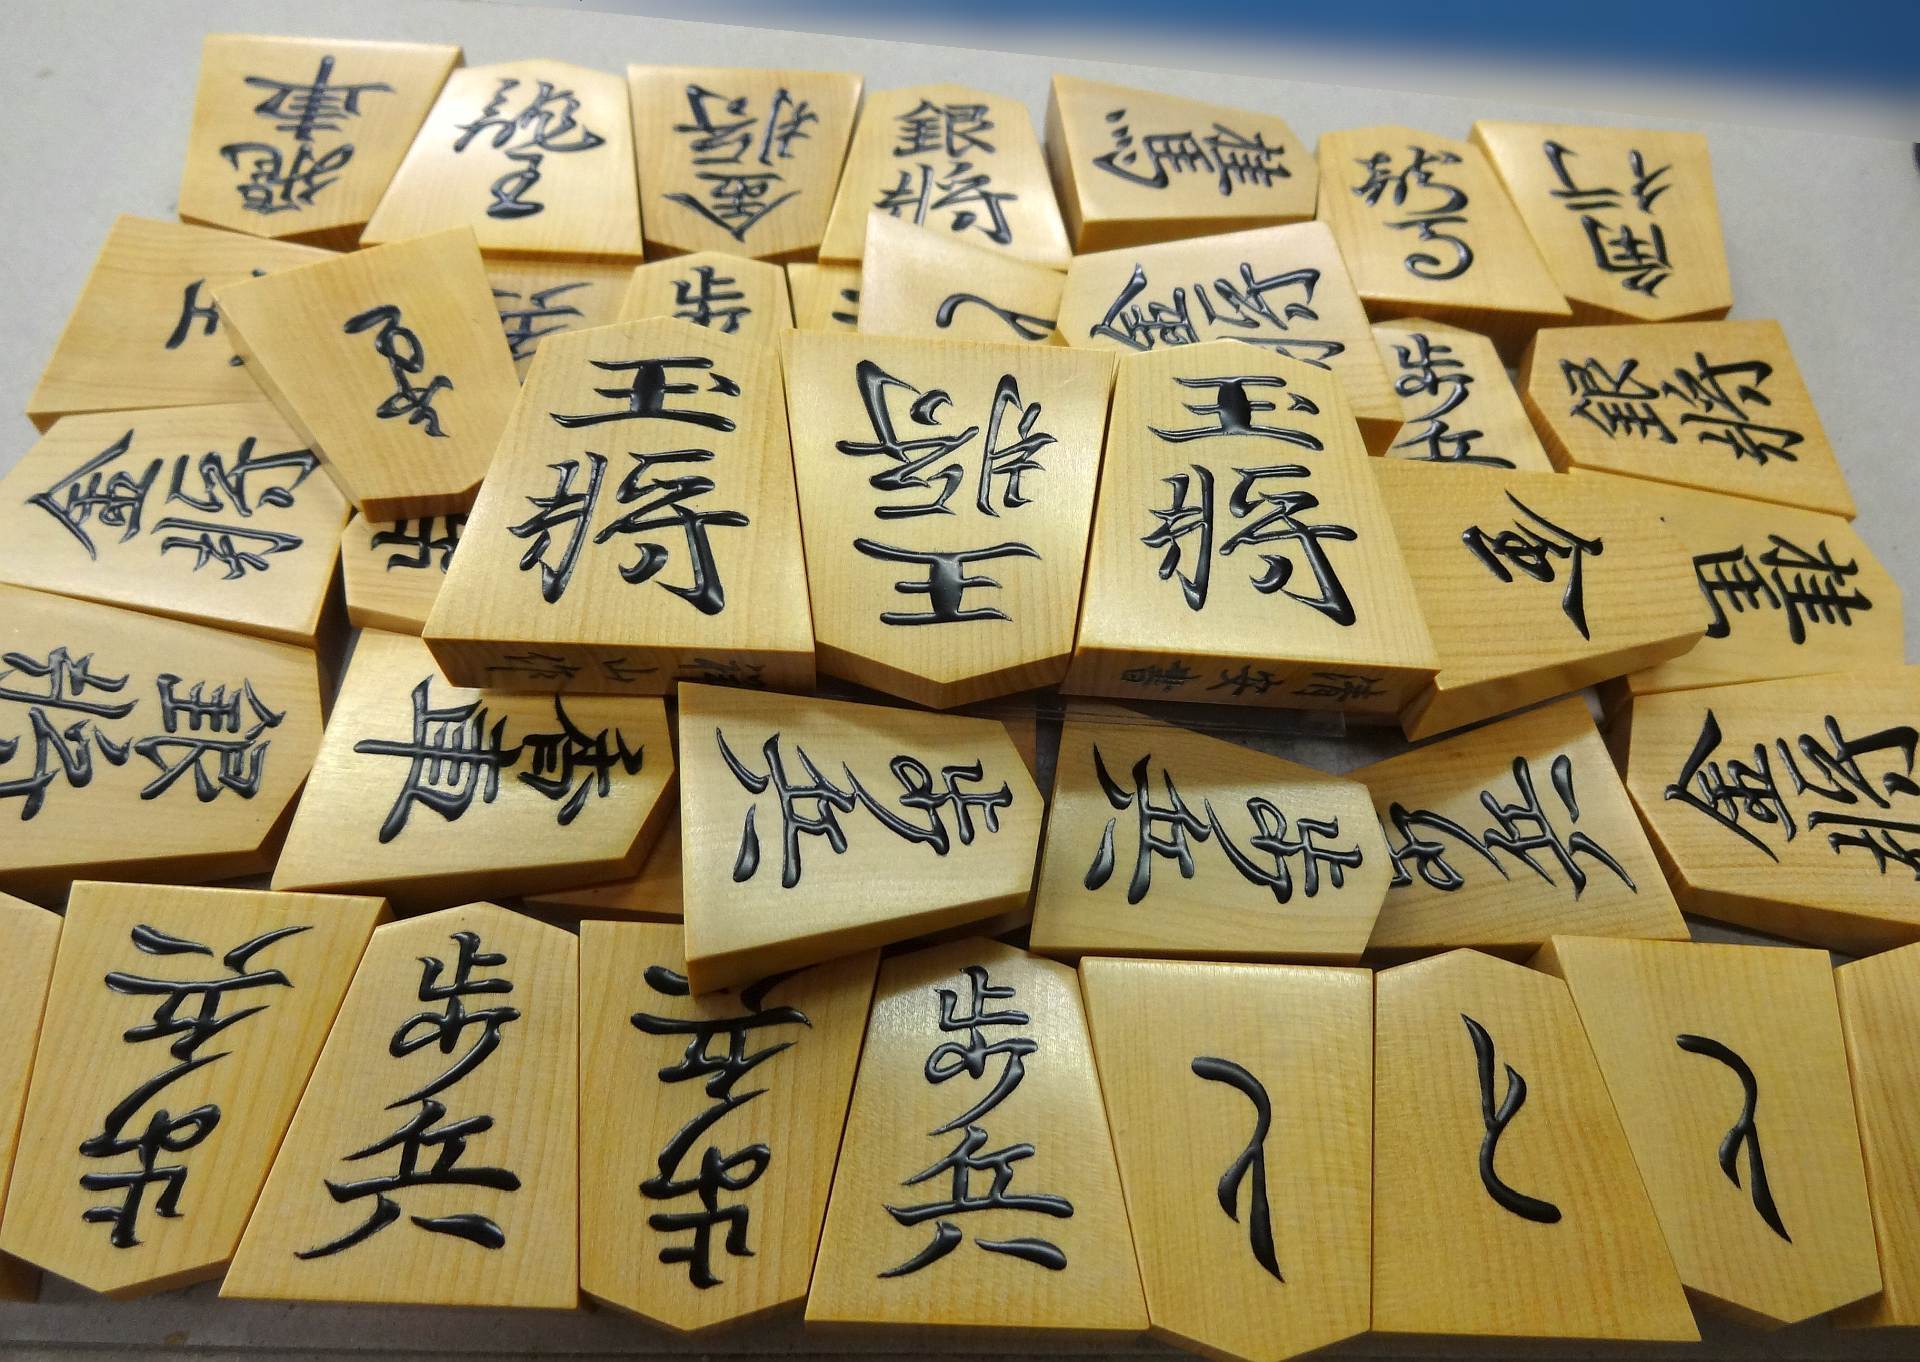 飛車
龍王
金将
銀将
龍馬
桂馬
角行
と
歩
金将
歩兵
銀将
玉将
王将
玉将
金将
金
桂馬
銀将
香車
歩兵
歩兵
歩兵
金将
清安書
歩兵
歩兵
歩兵
歩兵
と
と
と